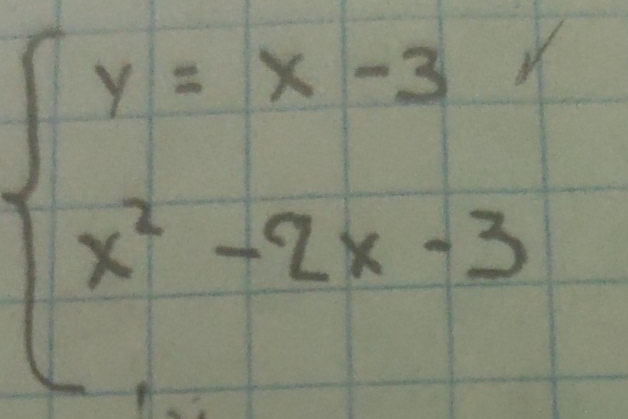 y = x - 3 ✓
x² - 2x - 3